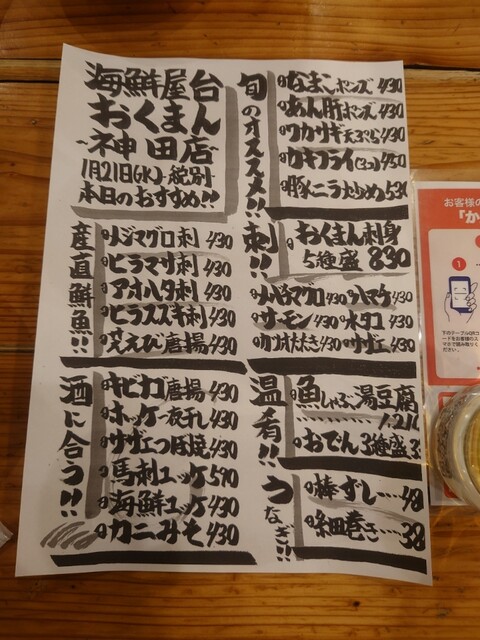 海鮮屋台
おくまん
-神田店-
1月21日(水)-税別-
本日のおすすめ!!
旬のオススメ!!
なまこポンズ 430
あん肝ポンズ 430
ワカサギ天ぷら 430
カキフライ(3コ) 450
豚ニラ炒め 530
産直鮮魚!!
メジマグロ刺 430
ヒラマサ刺 430
アオハタ刺 430
ヒラスズキ刺 430
唐揚 430
刺!!
おくまん刺身
5種盛 830
ハマチ 430
サーモン/430
水タコ 430
カツオたたき/430
サザエ 430
酒に合う!!
キビナゴ唐揚 430
ホッケ一夜干し 430
サザエつぼ焼 430
馬刺ユッケ 590
海鮮ユッケ 430
カニみそ 430
温肴!!
魚しゃぶ湯豆腐
おでん3種盛
うなぎ!!
棒ずし
細巻き
お客様の
「か
1
下のテーブルQRコ
ードをお客様のス
マホで読み取りく
ださい。